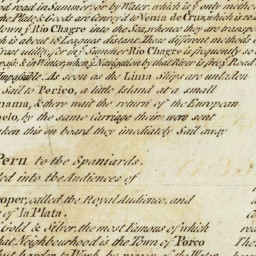 road in Summer, or by Water, which is ye only metho
the Plate & Goods are Convey'd to Venta de Cruz, which is a
Town on ye Rio Chagre into the Sea, whence they are transpor
ch is about 18 Leagues distant. That different methods o
great utility, for in ye Summer Rio Chagre is frequently so
ge & in Winter, when ye Navigation by that River is free, ye Road
Impassable. As soon as the Lima Ships are unladen
Sail to Perico, a little Island at a small
nama, & there wait the return of the European
belo, by the same Carriage theirs were sent
taken this in board they imediately Sail away
Peru to the Spaniards.
ded into the Audiences of
oper, called the Royal Audience, and
of la Plata.
Gold & Silver, the most Famous of which
that Neighbourhood is the Town of Porco
re
The